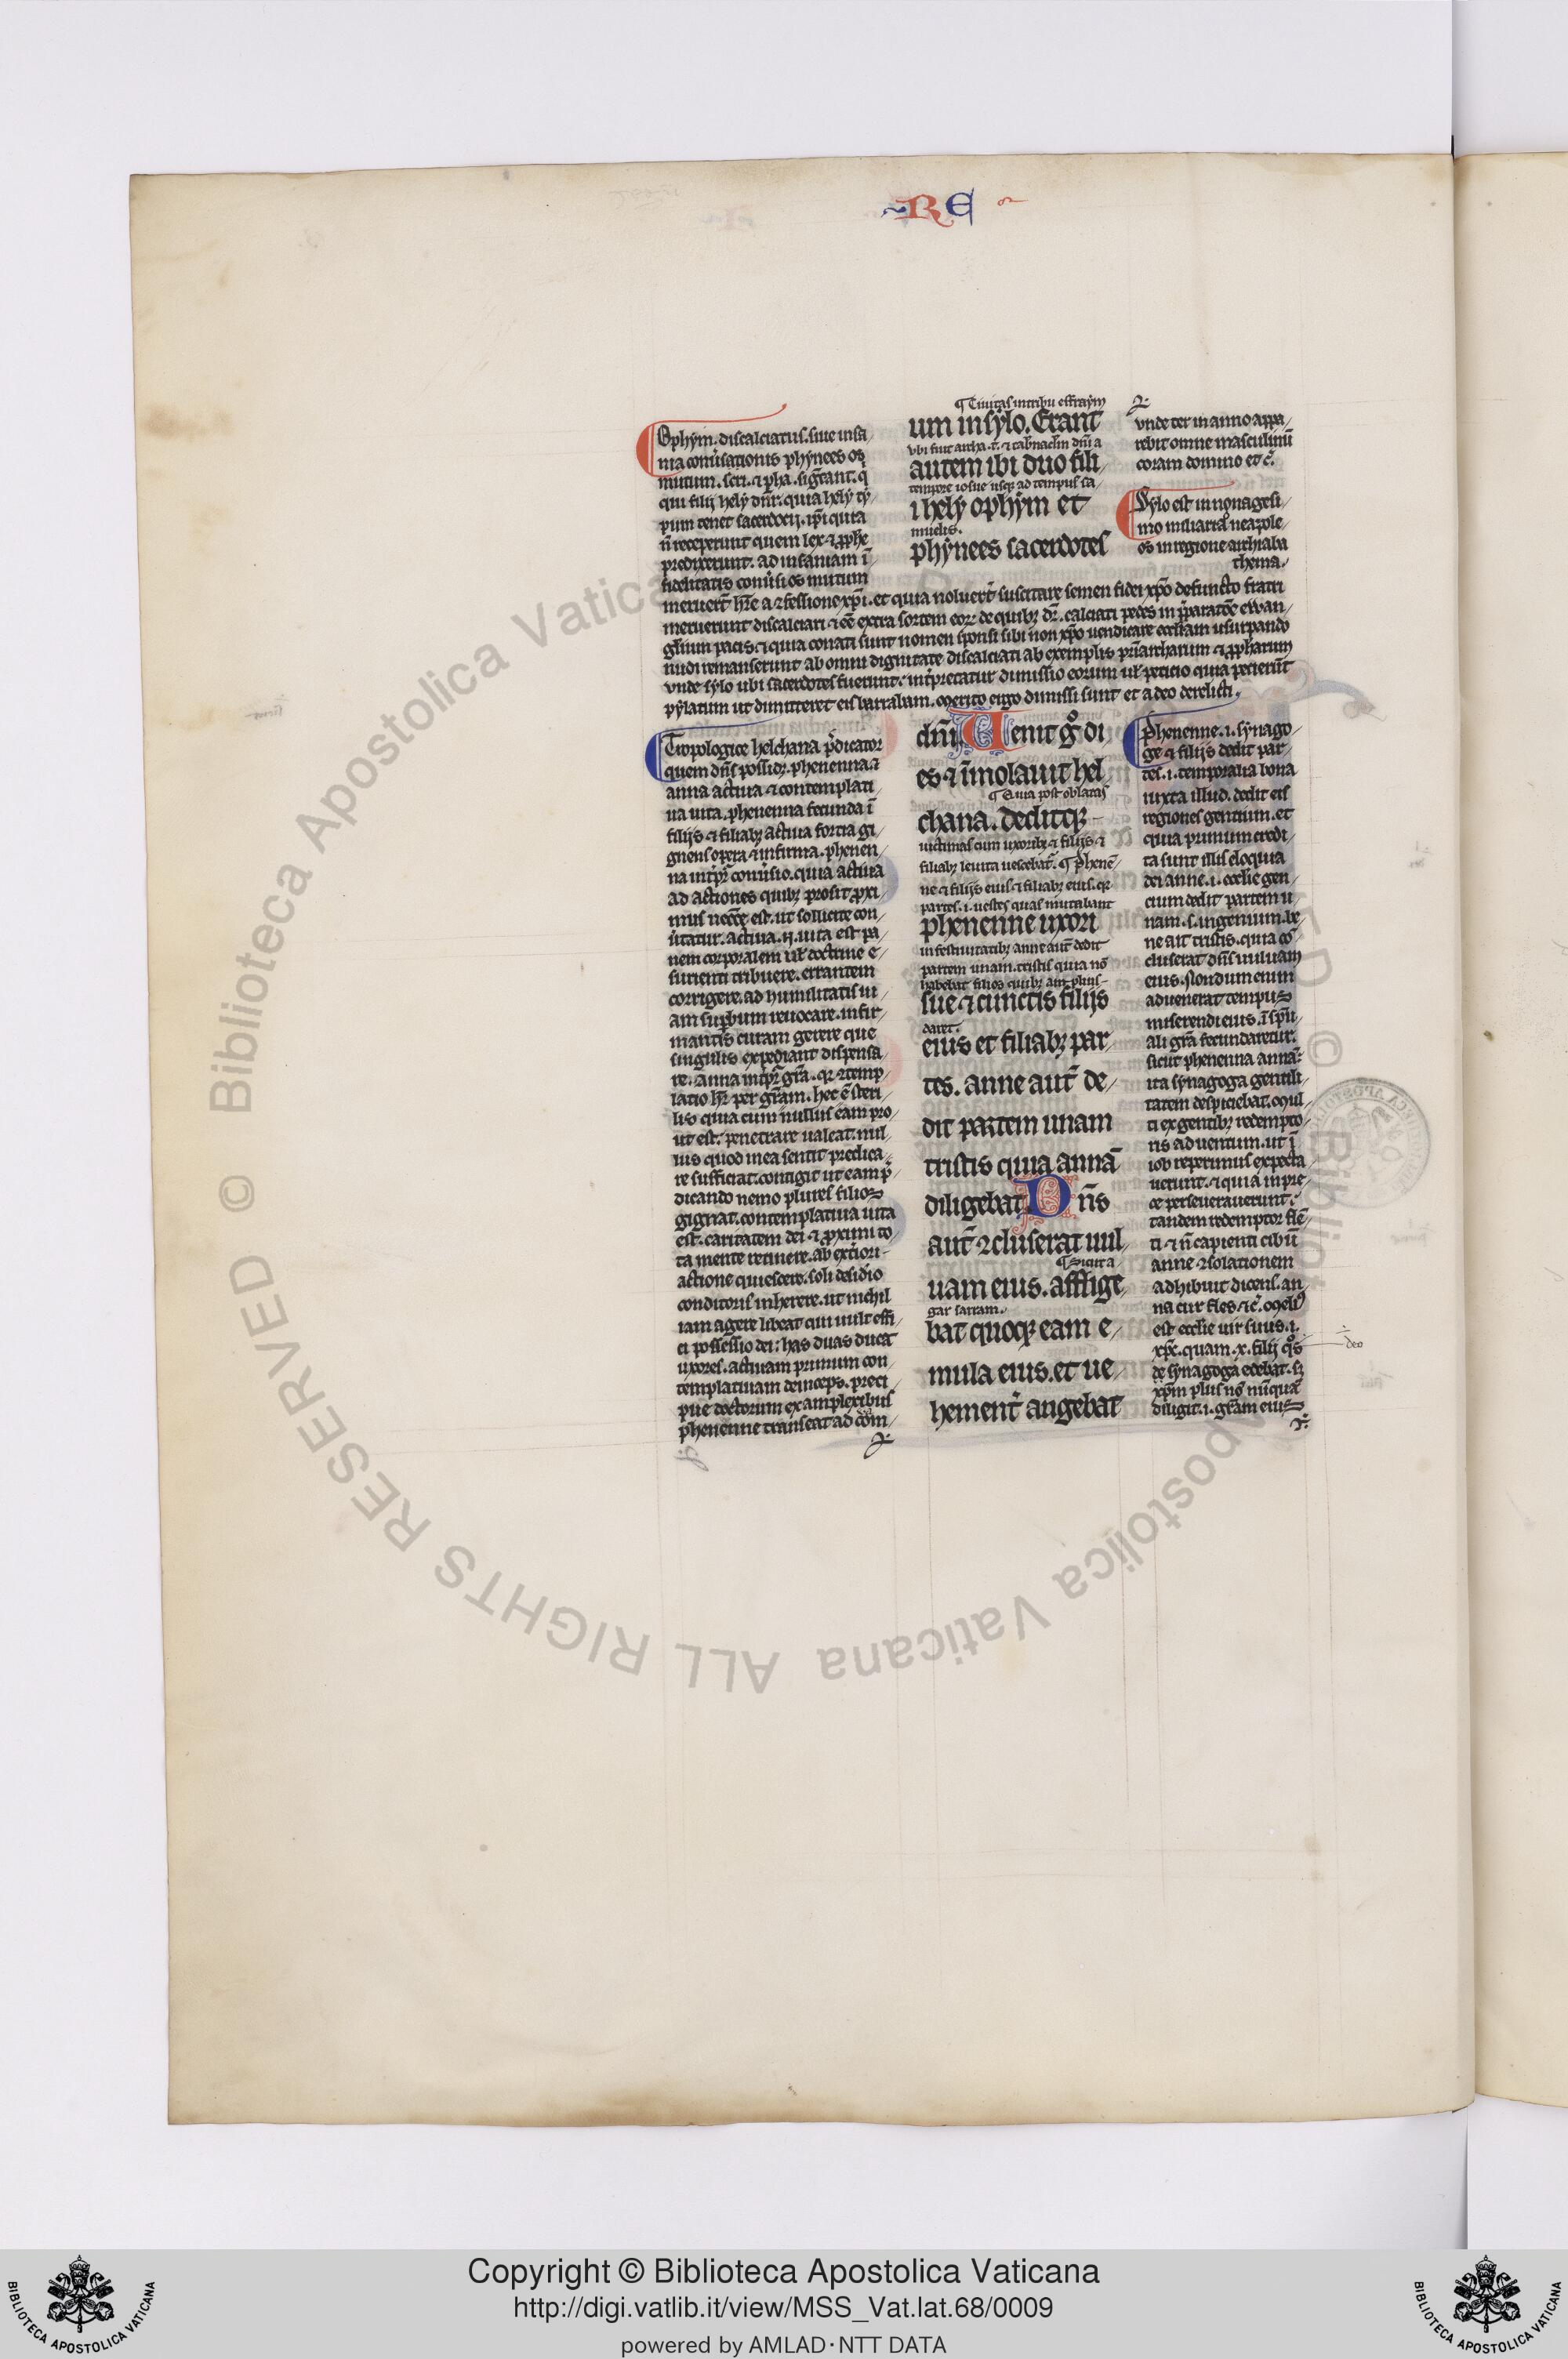 RE
Ophym. discalciatus. siue insa/
nia conũsationis phynees os
mutum. scri. ⁊ pha. sigñcant. q
qui filij hely dñr. quia hely ty/
pum tenet sacerdocij. ip̃i quia
ñ receperunt quem lex ⁊ ꝓphe
predixerunt. ad insaniam ĩ
fidelitatis conũsi os mutum
¶ Ciuitas intribu effraym
um insylo. Erant
autem ibi duo fili/
tempore iosue usq; ad tempus sa/
i hely ophym et
muelis.
phynees sacerdotes
vnde ter in anno appa/
rebit omne masculinũ
coram domino et c̃.
Sylo est in nonagesi/
mo miliario neapole/
os in regione achraba
thema.
meruert̃ hr̃e a ꝯfessione xp̃i. et quia noluert̃ suscitare semen fidei xp̃o defuncto fratri
meruerunt discalciari ⁊ eẽ extra sortem eoꝝ de quibꝫ dr̃. calciati pedes in p̃paratõe ewan/
glium pacis. ⁊ quia conati sunt nomen sponsi sibi non xp̃o uendicare eccl̃iam usurpando
nudi remanserunt ab omni dignitate discalciati ab exemplis pr̃iarcharum ⁊ ꝓpharum
vnde sylo ubi sacerdotes fuerunt. int̃pretatur dimissio eorum ul̃ peticio quia pecierũt
pylatum ut dimitteret eis barraban. merito ergo dimissi sunt et a deo derelicti.
Tropologice helchana p̃dicator
quem dñs possidꝫ. phenenna ⁊
anna actiua ⁊ contemplati/
ua uita. phenenna fecunda ĩ
filijs ⁊ filiabꝫ actiua fortia gi/
gnens opera ⁊ infirma. phenen/
na int̃pr̃ conũsio. quia actiua
ad actiones quibꝫ prosit proxi/
mus necc̃e est. ut sollicite con/
ũtatur. actiua. n. uita est pa/
nem corporalem ul̃ doctrine e/
surienti tribuere. errantem
corrigere. ad humilitatis ui/
am sup̃bum reuocare. infir
mantis curam gerere que
singulis expediant dispensa/
re. anna int̃pr̃ gr̃a. qꝛ ꝯtemp/
latio hr̃ per gr̃am. hec ẽ steri/
lis quia cum nullus eam pro/
ut est. penetrare ualeat. nul/
lus quod in ea sentit predica/
re sufficiat. contigit ut eam p̃/
dicando nemo plures filios
gignat. contemplatiua uita
est. caritatem dei ⁊ proximi to/
ta mente retinere. ab ext̃iori
actione quiescere. soli desid̃io
conditoris inherere. ut nichil
iam agere libeat qui uult effi/
ci possessio dei: has duas ducat
uxores. actiuam primum con/
templatiuam deinceps. preci/
pue doctorum ex amplexibus
phenenne transeat ad com/
dñi Uenit gͦ di/
es ⁊ ĩmolauit hel/
¶ Quia post oblatas
chana. deditqꝫ
uictimas cum uxoribꝫ ⁊ filijs ⁊
filiabꝫ leuita uescebat̃. ¶ Phenẽ/
ne ⁊ filijs eius ⁊ filiabꝫ eius. qꝛ
partes. i. uestes quas mutabant
phenenne uxori
in festiuitatibꝫ anne aut̃ dedit
partem unam. tristis quia nõ
habebat filios quibꝫ
sue ⁊ cunctis filijs
daret.
eius et filiabꝫ par/
tes. anne aut̃ de/
dit partem unam
tristis quia annã
diligebat Dñs
aut̃ ꝯcluserat uul/
¶ Sicut a
uam eius. afflige
gar sarram.
bat quoqꝫ eam e/
mula eius. et ue/
hement̃ angebat
Phenenne. i. synago/
ge ⁊ filijs dedit par/
tes. i. temporalia bona
iuxta illud. dedit eis
regiones gentium. et
quia primum credi/
ta sunt illis eloquia
dei anne. i. eccl̃ie gen/
cium dedit partem u/
nam. s. ingenium. be/
ne ait tristis. quia cõ/
cluserat dñs uuluam
eius. Nondum enim
aduenerat tempus
miserendi eius. ĩ sp̃u/
ali gr̃a fecundaretur.
sicut phenenna annã:
ita synagoga gentili/
tatem despiciebat. mul/
ti ex gentibꝫ redempto/
ris aduentum. ut ĩ
iob reperimus expecta/
uerunt. ⁊ quia in pre/
ce perseuerauerunt.
tandem redemptor flẽ/
ti ⁊ ñ capienti cibũ
anne ꝯsolationem
adhibuit dicens. an/
na cur fles ⁊ c̃. meli᷒
est eccl̃ie uir suus. i.
xp̃c. quam .x. filij qͦs
de synagoga edebat. sꝫ
xp̃m plus nõ nũquã
diligit. i. gr̃am eius
deo
Copyright © Biblioteca Apostolica Vaticana
http://digi.vatlib.it/view/MSS_Vat.lat.68/0009
powered by AMLAD · NTT DATA
BIBLIOTECA APOSTOLICA VATICANA
BIBLIOTECA APOSTOLICA VATICANA
© Biblioteca Apostolica Vaticana ALL RIGHTS RESERVED